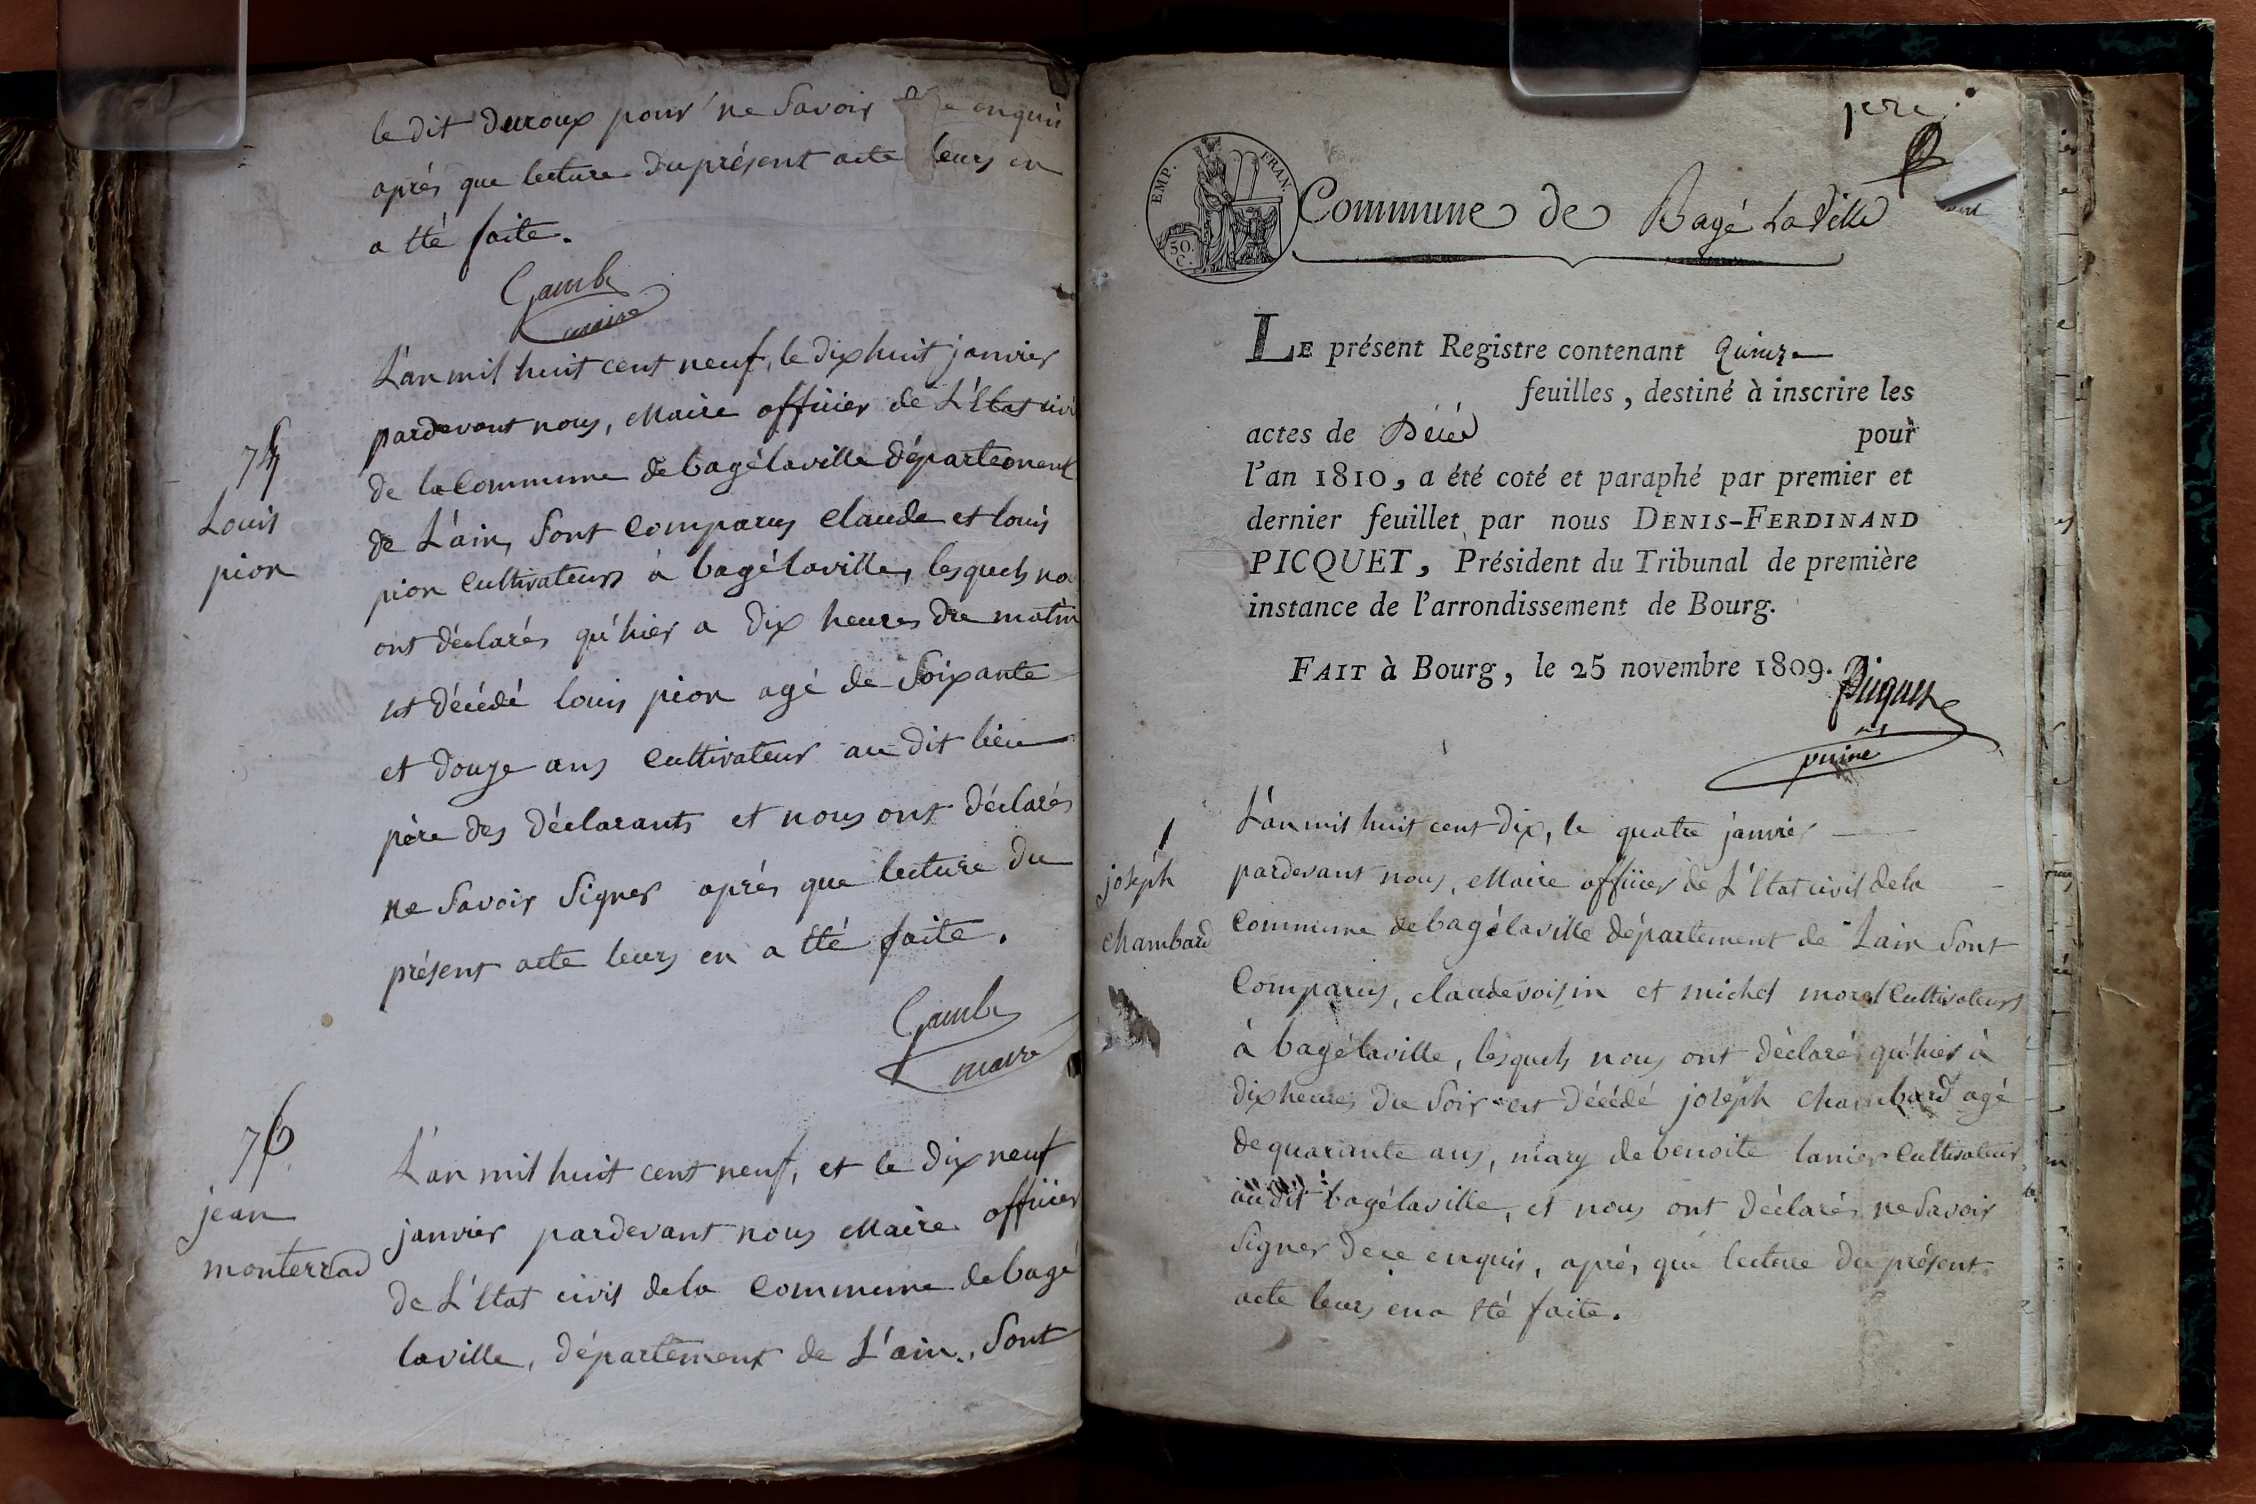 le dit duroux pour ne Savoir de ce enquis
aprés que lecture du présent acte leurs en
a été faite.
Gambe
maire
75
Louis
pion
L'an mil huit cent neuf, le dix huit janvier
pardevant nous, Maire officier de L'état civil
de la Commune de bagélaville département
de L'ain, Sont Comparus Claude et louis
pion Cultivateurs à bagélaville, lesquels no
ont déclarés qu'hier a dix heures du matin
est décédé louis pion agé de Soixante
et douze ans Cultivateur au dit lieu
père des déclarants et nous ont déclarés
ne Savoir Signer aprés que lecture du
présent acte leurs en a été faite.
Gambe
maire
76
jean
monterrad
L'an mil huit cent neuf, et le dix neuf
janvier pardevant nous Maire officier
de L'état civil de la Commune de bagé
laville, département de L'ain, Sont
pere
EMP. FRAN.
50.
C.
Commune de Bagé La Ville
LE présent Registre contenant Quinze
feuilles, destiné à inscrire les
actes de Décès pour
l'an 1810, a été coté et paraphé par premier et
dernier feuillet par nous DENIS-FERDINAND
PICQUET, Président du Tribunal de première
instance de l'arrondissement de Bourg.
FAIT à Bourg, le 25 novembre 1809.
Picquet
1
joséph
Chambard
L'an mil huit cent dix, le quatre janvier
pardevant nous, Maire officier de L'état civil de la
Commune de bagélaville département de Lain Sont
Comparus, claude voisin et michel morel Cultivateurs
à bagélaville, lesquels nous ont déclaré qu'hier à
dix heures du Soir est décédé joséph Chambard agé
de quarante ans, mary de benoite lanier Cultivateur
au dit bagélaville, et nous ont déclarés ne Savoir
Signer de ce enquis, aprés que lecture du présent
acte leurs en a été faite.